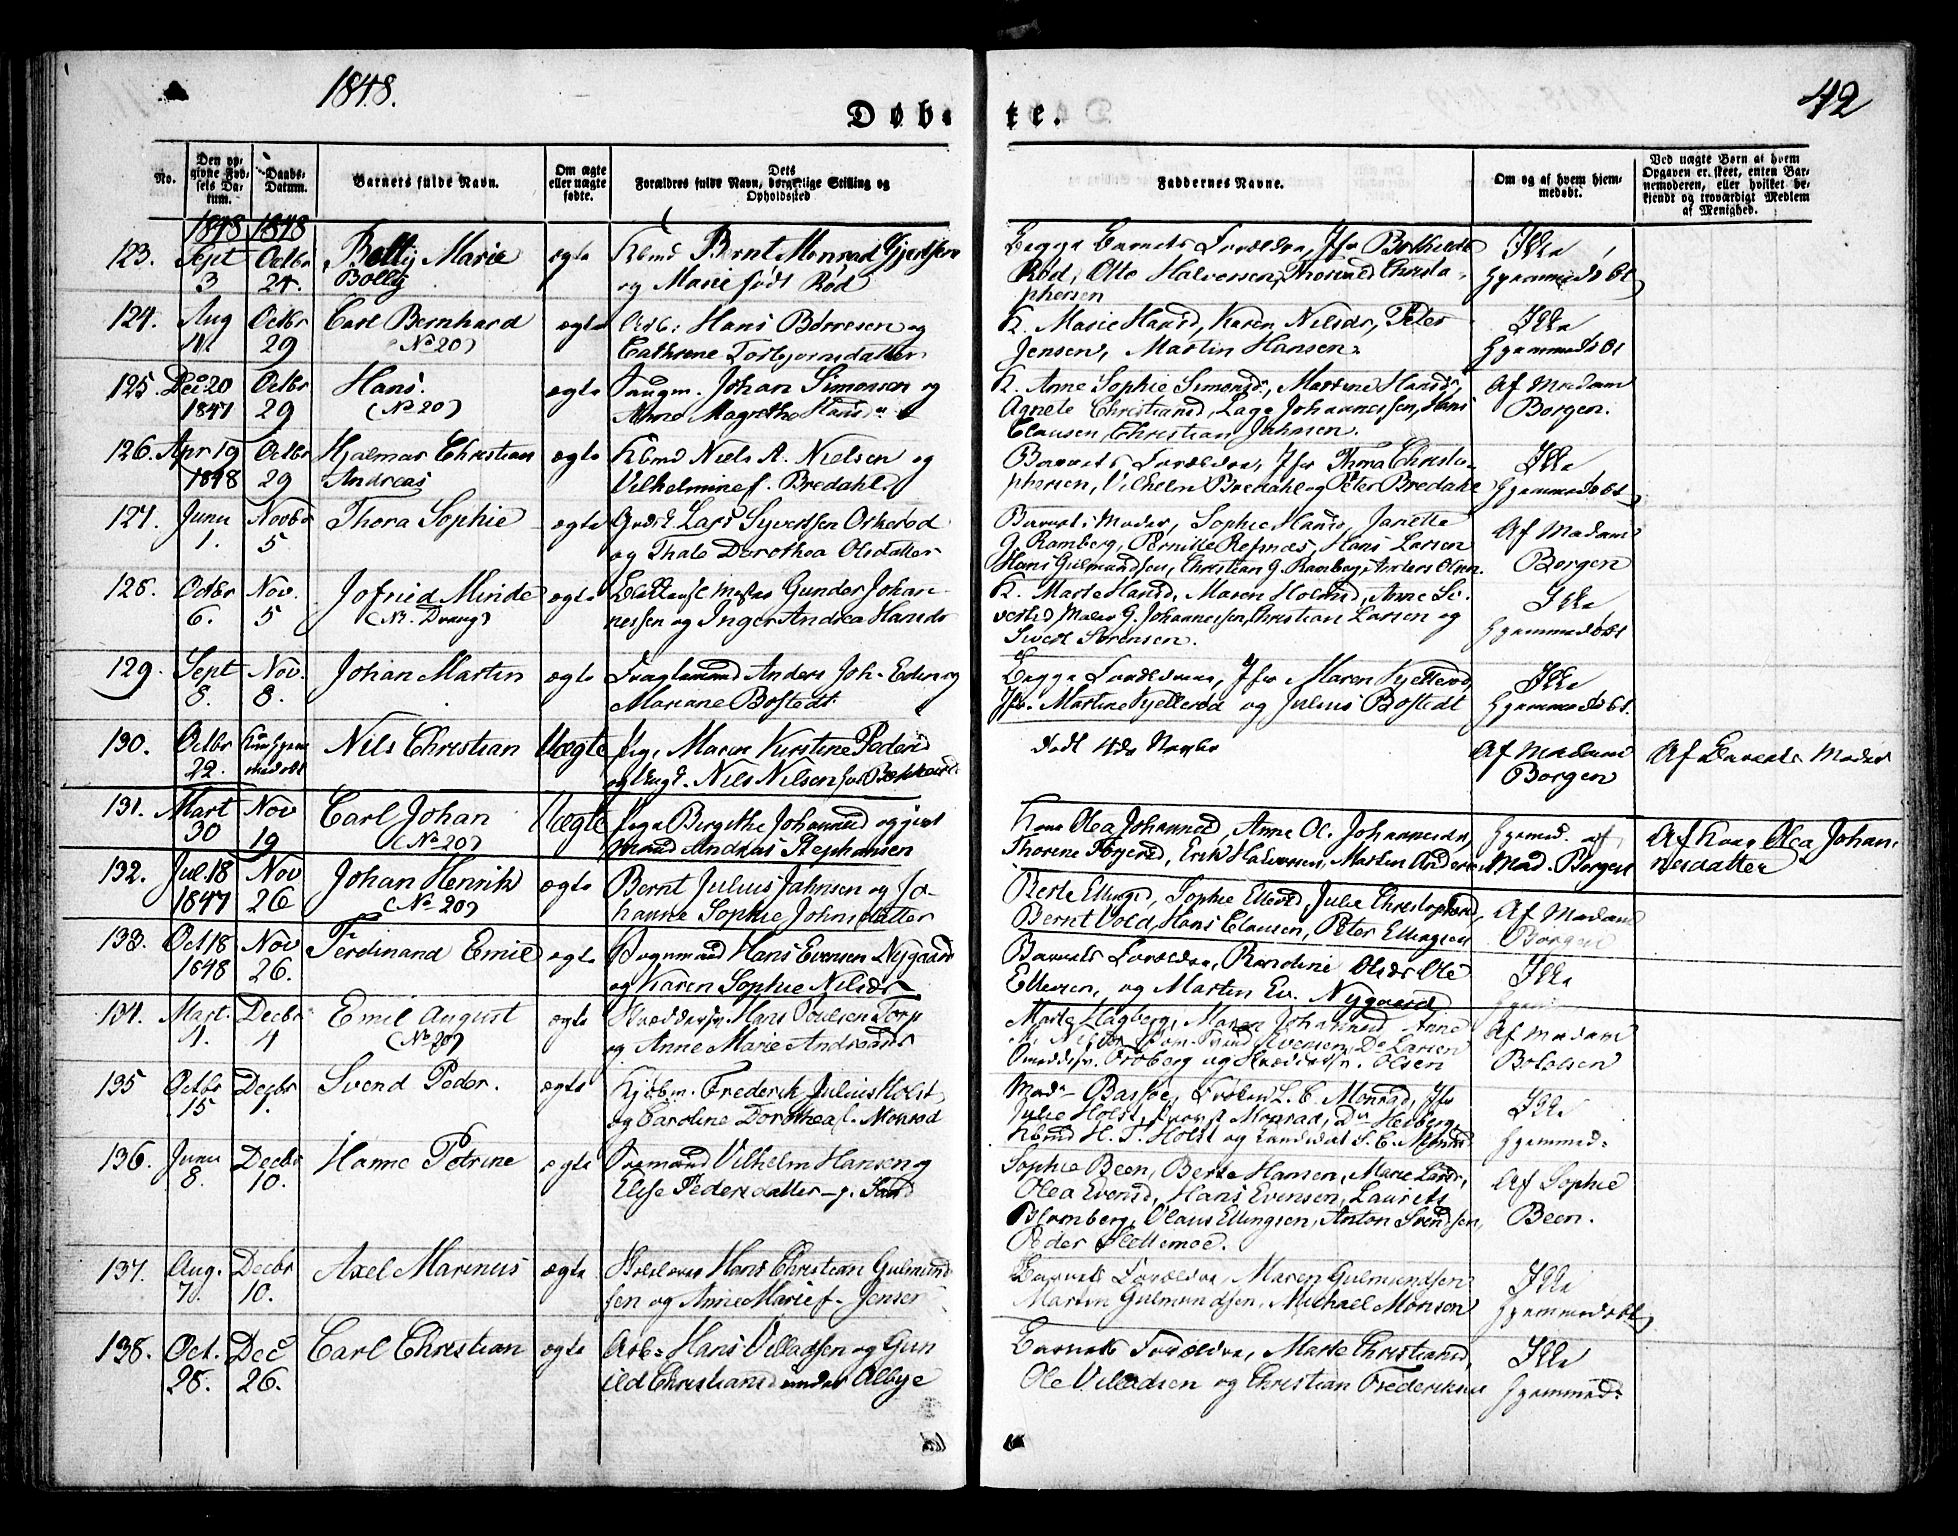 1848.
42
Døbte.
No.
Den opgivne Fødsels Datum.
Daabs-Datum.
Barnets fulde Navn.
Om ægte eller uægte fødte.
Dets Forældres fulde Navn, borgerlige Stilling og Opholdssted
Faddernes Navne.
Om og af hvem hjemmedøbt.
Ved uægte Børn af hvem Opgaven er skeet, enten Barnemoderen, eller hvilket bekjendt og troværdigt Medlem af Menighed.
1848 1848
123. Sept 3 Octbr 24. Betty Marie Bolly ægte Kbmd Bernt Monrad Gjertsen
og Marie født Röd
Begge Barnets Forældre, Jfr Bothilde
Röd, Otto Halvorsen, Thorvald Christo-
phersen
Ikke
hjemmedöbt
124. Aug Octbr 29 Carl Bernhard (No 20) ægte Arb: Hans Börresen og
Cathrine Torbjornsdatter
K. Marie Hansd, Karen Nilsdr, Peter
Jensen, Martin Hansen.
Ikke
hjemmedöbt
125. Dec 20 1847 Octbr 29 Hans. (No 20) ægte Saugm. Johan Simonsen og
Anne Magrethe Hansd
K. Anne Sophie Simonsd, Martine Hansdr,
Agnete Christiansd, Lage Johannessen, Hans
Clausen, Christian Jahnsen.
Af Madam
Borgen.
126. Apr 19 1848 Octbr 29 Hjalmar Christian Andreas ægte Kbmd Niels A. Nielsen og
Vilhelmine f. Bredahl
Barnets Forældre, Jfr Thora Christo-
phersen, Vilhelm Bredahl og Peter Bredahl
Ikke
hjemmedöbt
127. Juni 1. Novbr 5 Thora Sophie ægte Lars Syvertsen Orkeröd
og Thale Dorothea Olsdatter
Barnets Moder, Sophie Hansd, Janette
G. Ramberg, Pernille Refsnes, Hans Larsen
Hans Gulmundsen, Christian G. Ramberg, Anders Olsen.
Af Madam
Borgen
128. Octbr 6. Nov. 5 Jofried Minde (No. Draug) ægte Gunder Johan-
nessen og Inger Andrea Hansdr
K. Marte Hansd, Maren Holmsd, Anne Si-
vertsd G. Johannessen, Christian Larsen og
Sivert Sörensen.
Ikke
hjemmedöbt
129. Sept 8. Nov. 8. Johan Martin ægte Fragtemand Anders Joh. Edin og
Mariane Bostedt
Begge Forældrene, Jfr Maren Kjelleröd
Jfr. Martine Kjelleröd og Julius Bostedt
Ikke
hjemmedöbt.
130. Octbr 22. Kun hjem medöbt Nils Christian Uægte Pige Maren Kirstine Pedersd
og Nils Nilsen
Död 4de Novbr
Af Madam
Borgen
Af Barnets Moder
131. Mart 30 Nov 19 Carl Johan (No 20) Uægte Pige Bergithe Johannesd og givt
Mand Andreas Stephansen
Kone Olea Johannesd, Anne Ol. Johannesdr,
Thorine Torgersd, Erik Halvorsen, Martin Andersen
Hjemmed. af
Mad. Borgen
Af Kone Olea Johan-
nesdatter
132. Jul. 18 1847 Nov 26 Johan Henrik (No 20) ægte Bernt Julius Jahnsen og Jo-
hanne Sophie Johnsdatter
Berte Ellingsd, Sophie Ellevsd, Julie Christophersd,
Bernt Vold, Hans Clausen, Peter Ellingsen
Af Madam
Borgen
133. Oct 18 1848 Nov 26. Ferdinand Emil ægte Vognmand Hans Evensen Nygaard
og Karen Sophie Nilsdr
Barnets Forældre, Karoline Olsdr Ole
Ellevsen, og Martin Ev. Nygaard
Ikke
134. Mart. 1. Decbr 4 Emil August (No 20) ægte Skræddersv. Hans Poulsen Torp
og Anne Marie Andreasdr
Marte Hagberg, Maren Johannesd Anne
Evensen, Larsen
og Skræddersv. Olsen
Af Madam
135 Octbr 15 Decbr 1. Svend Peder. ægte Kjöbm. Frederik Julius Holst,
og Caroline Dorothea f. Monrad
Mad. Bassöe, Fröken L. C. Monrad, Jfr
Julie Holst, Monrad, Dr Heiberg
Kbmd H. T. Holst og Candidat S. C. Monrad
Ikke
hjemmed.
136. Juni 8. Decbr 10. Hanne Petrine ægte Sömand Vilhelm Hansen og
Elise Pedersdatter
Sophie Been, Berte Hansen, Marie Larsdr,
Olea Evensd, Hans Evensen, Laurits
Blomberg, Olaus Ellingsen, Anton Svendsen,
Peder Slettemoe.
Af Sophie
Been.
137. Aug. 7. Decbr 10. Axel Marinus ægte Hans Christian Gulmund-
sen og Anne Marie f. Jensen
Barnets Forældre, Maren Gulmundsen
Martin Gulmundsen, Michael Monsen
Ikke
hjemmedöbt
138. Oct. 28. Dec 26. Carl Christian ægte Arb. Hans Villadsen og Gun
ild Christiansd under Albye
Barnets Forældre, Marte Christiansd,
Ole Villadsen og Christian Frederiksen
Ikke
hjemmed.